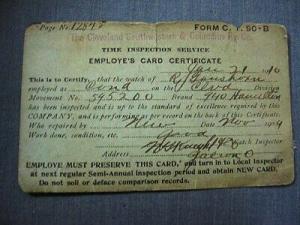 Page No. 12847 FORM C. T. 90-B
The Cleveland Southwestern & Columbus Ry. Co.
TIME INSPECTION SERVICE
EMPLOYE'S CARD CERTIFICATE
21 1910
This is to Certify, that the watch of R.
employed as Cond on Clevd Division
Movement No. 545200 Brand 940 Hamilton
has been inspected and is up to the standard of excellence required by this
COMPANY, and is performing as per record on the back of this Certificate.
Who repaired by New Date Nov 1909
Work done, condition, etc. Good
Watch Inspector
Address
EMPLOYE MUST PRESERVE THIS CARD, and turn in to Local Inspector
at next regular Semi-Annual inspection period and obtain NEW CARD.
Do not soil or deface comparison records.